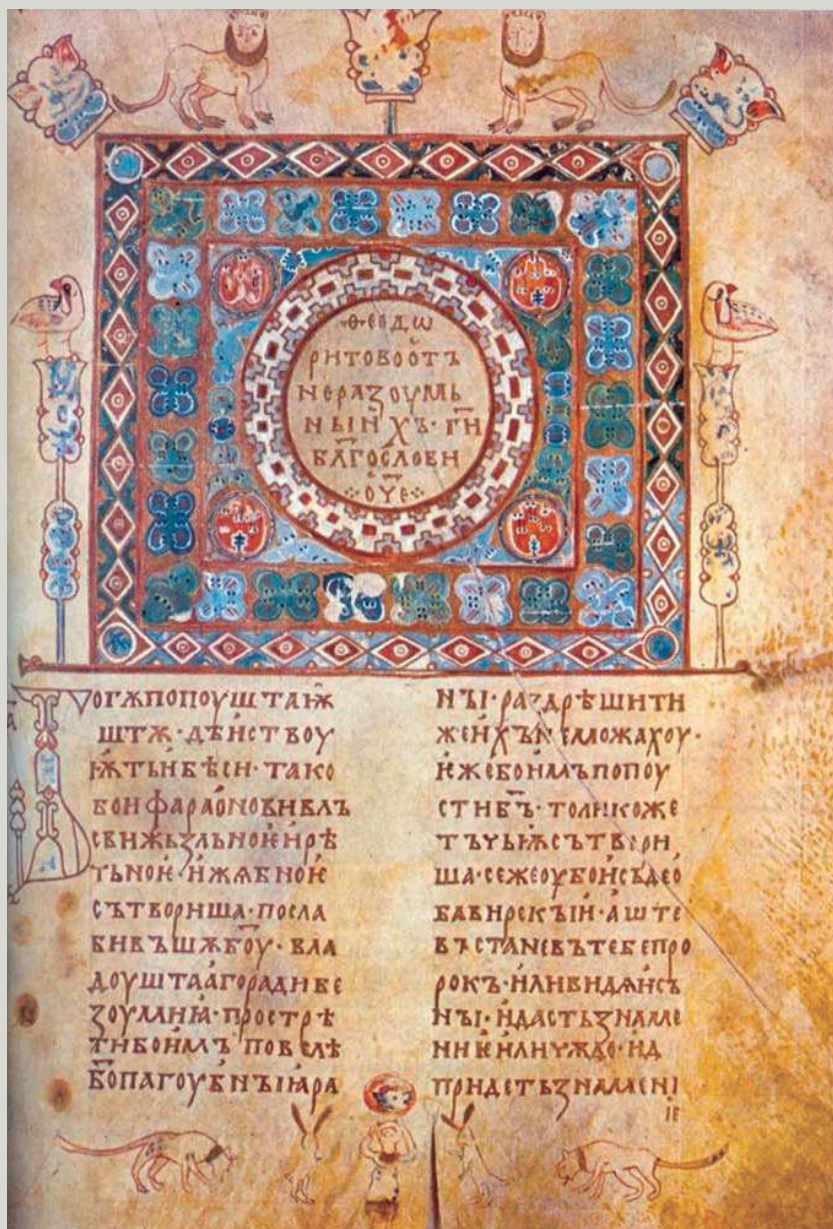 ·Ѳ·ЕОДѠ
РИТОВООТЪ
НЕРАЗОУМЬ
НЫИХЪ·Г҃И
БЛ҃ГОСЛОВИ
О҃ЧЕ
ТОГѪПОПОУШТАѬ
ШТѪ·ДѢИСТВОУ
ѬТЬИБѢСИ·ТАКО
БОИФАРАОНОВИВЛЪ
СВИЖЬЗЛЬНОѤИРѢ
ТЬНОѤ·ИЖѦБНОѤ
СЪТВОРИША·ПОСЛА
БИВЪШѪБ҃ОУ·ВЛА
ДОУШТААГОРАДИБЕ
ЗОУМИꙖ·ПРОСТРѢ
ТИБОИМЪПОВЕЛѢ
Б҃ОПАГОУБНЪІꙖРА
НЪІ·РАЗДРѢШИТИ
ЖЕИХЪНЕМОЖАХОУ·
ѤЖЕБОИМЪПОПОУ
СТИБ҃Ъ·ТОЛИКОЖЕ
ТЪЧЬѬСЪТВОРИ
ША·СЕЖЕОУБОИСЪДЕѤ
БАВИРЕКЪІИ·АШТЕ
ВЪСТАНЕВЪТЕБЕПРО
РОКЪ·ИЛИВИДѦИСЪ
НЪІ·ИДАСТЬЗНАМЕ
НИѤИЛИЧЮДО·ИД
ПРИДЕТЬЗНАМЕНІ
ІЕ